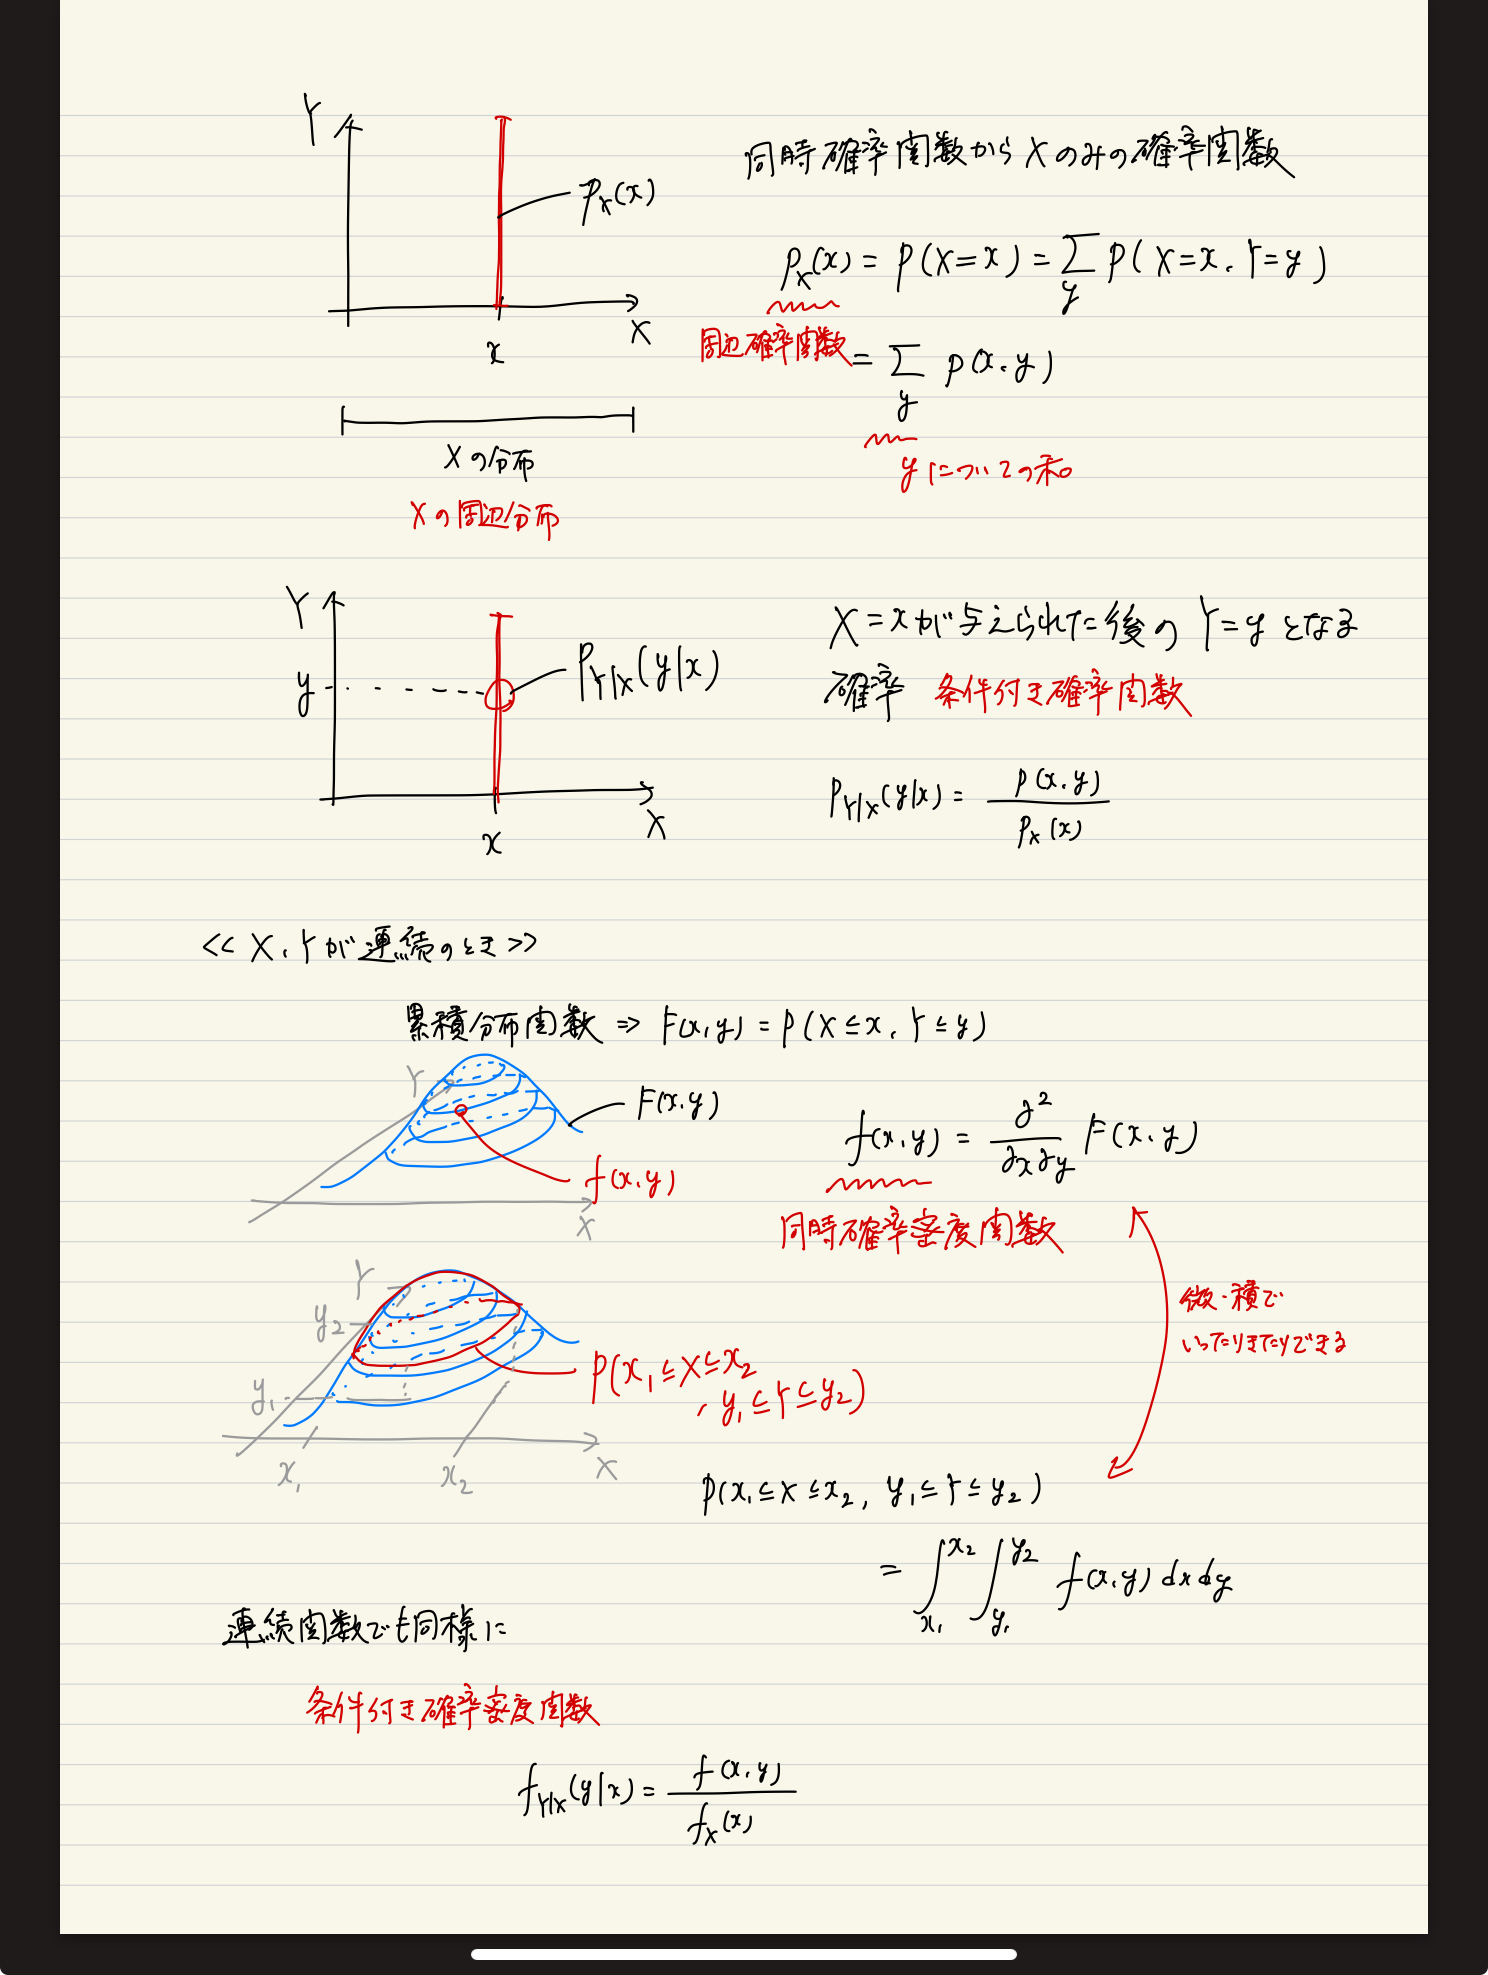 Y
p_X(x)
X
x
Xの分布
Xの周辺分布
同時確率関数からXのみの確率関数
p_X(x) = P(X=x) = Σ_y P(X=x, Y=y)
周辺確率関数
= Σ_y p(x,y)
yについての和
Y
y
P_{Y|X}(y|x)
X
x
X=xが与えられた後のY=yとなる
確率 条件付き確率関数
P_{Y|X}(y|x) = p(x,y) / p_X(x)
<< X, Yが連続のとき >>
累積分布関数 ⇒ F(x,y) = P(X≤x, Y≤y)
Y
F(x,y)
f(x,y)
X
f(x,y) = ∂²/∂x∂y F(x,y)
同時確率密度関数
微・積で
いったりきたりできる
Y
y₂
y₁
x₁
x₂
X
P(x₁≤X≤x₂
, y₁≤Y≤y₂)
P(x₁≤X≤x₂, y₁≤Y≤y₂)
= ∫_{x₁}^{x₂} ∫_{y₁}^{y₂} f(x,y) dxdy
連続関数でも同様に
条件付き確率密度関数
f_{Y|X}(y|x) = f(x,y) / f_X(x)